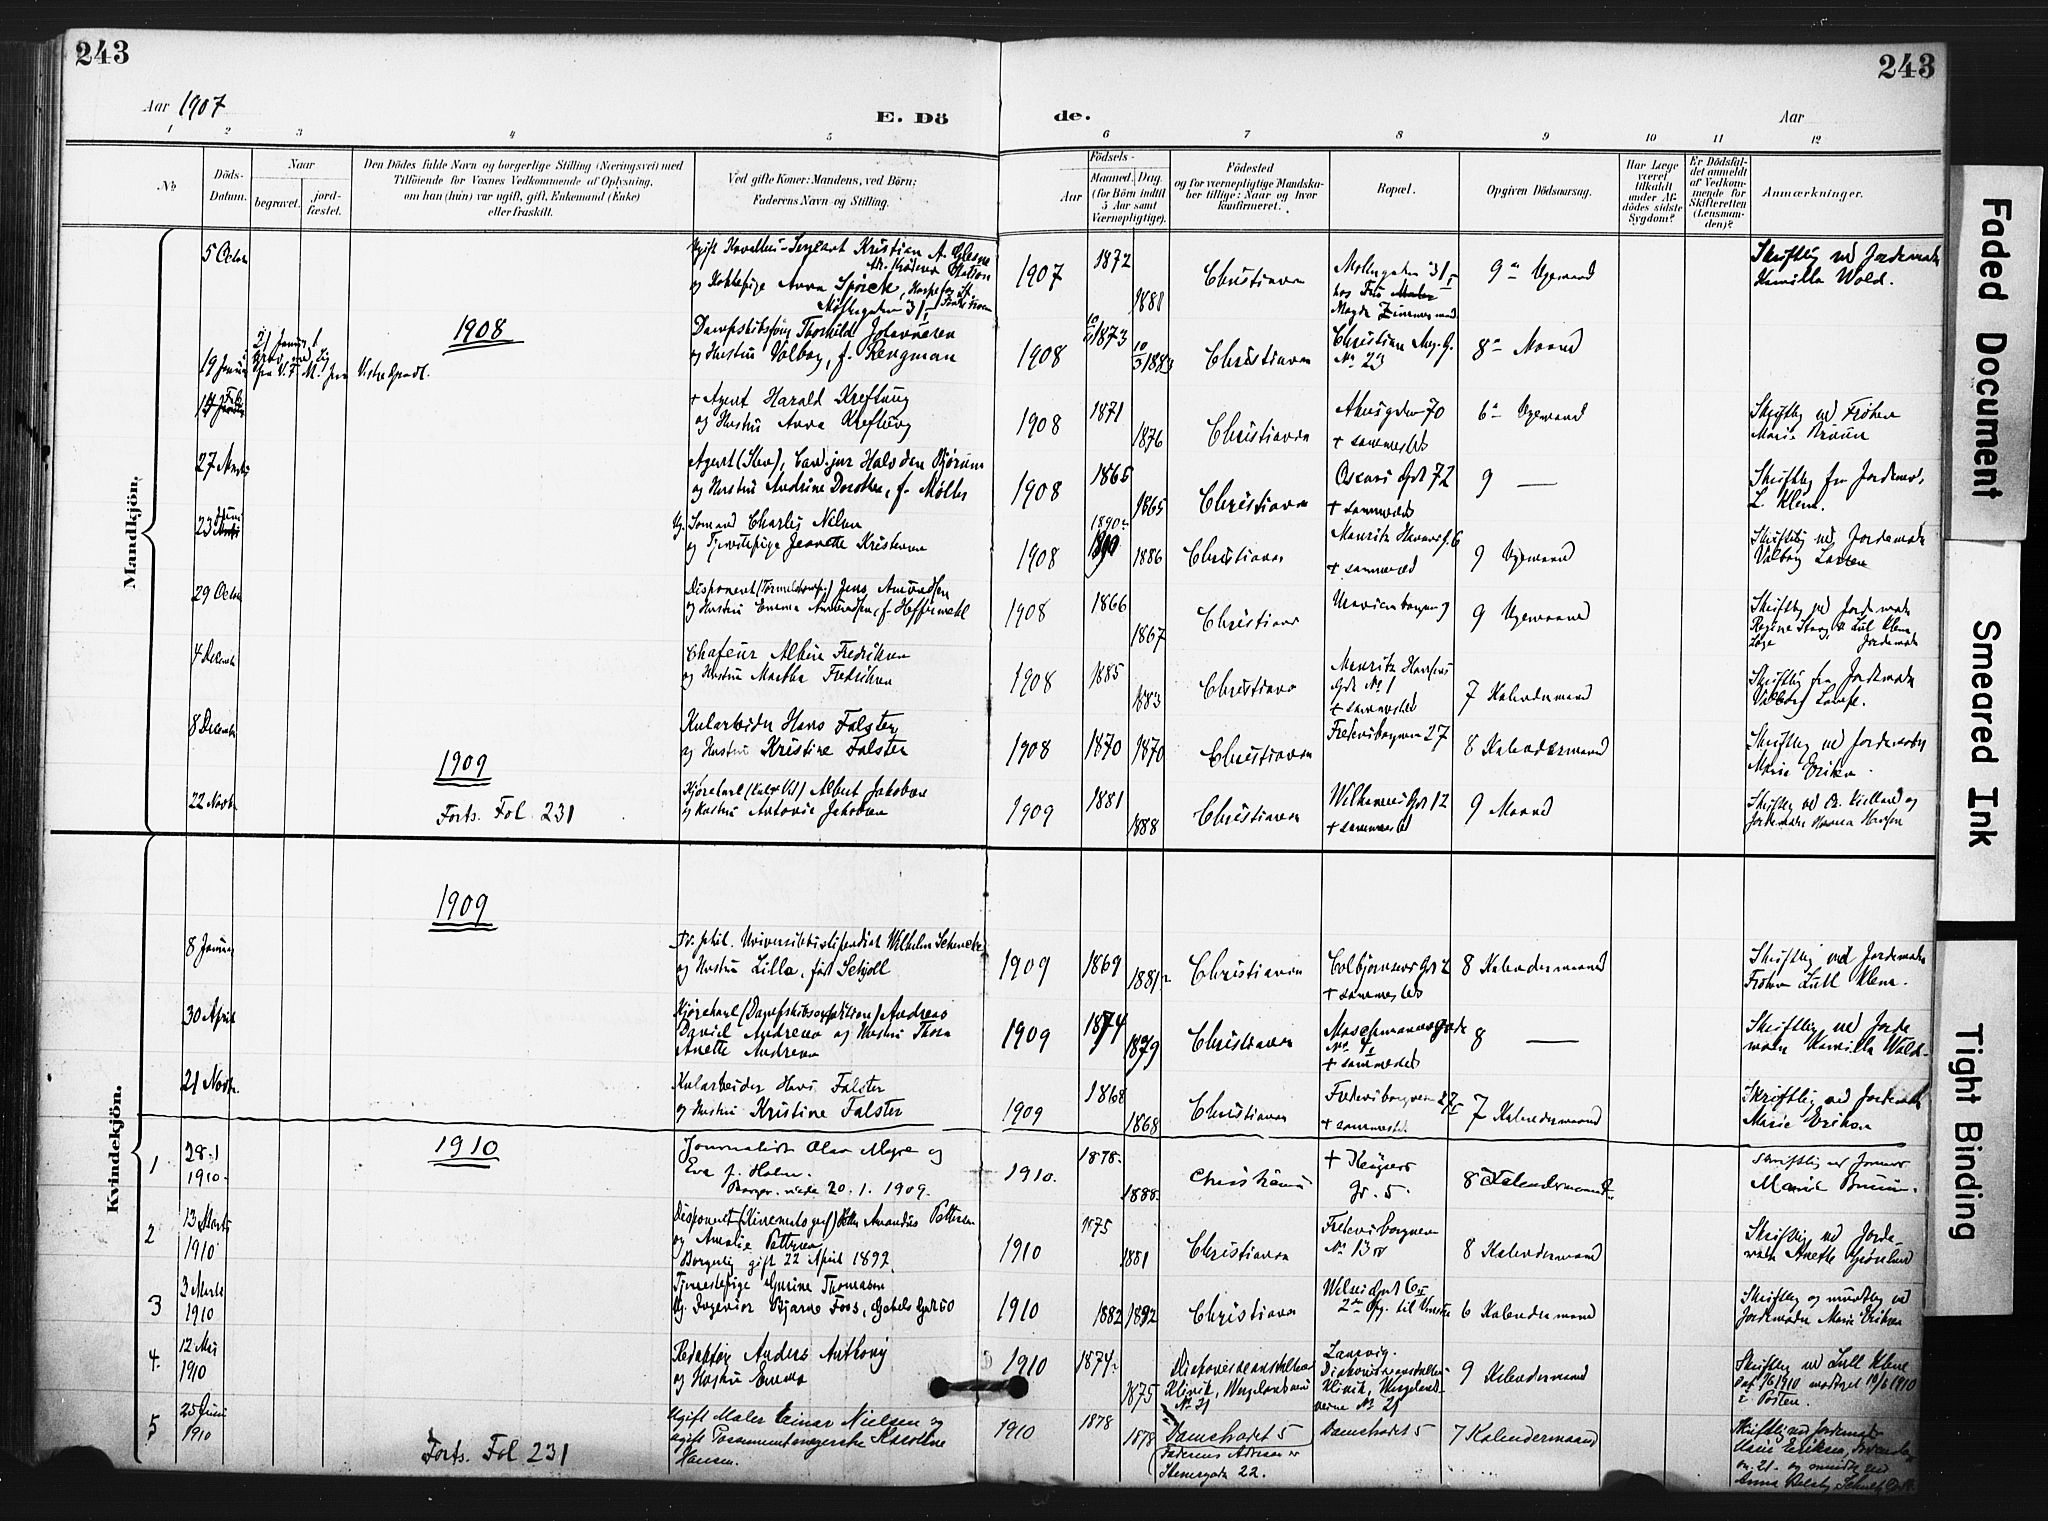 243
243
Aar 1907
E. Dö
de.
Aar
1 2 3 4 5 6 7 8 9 10 11 12
No
Döds-Datum.
Naar
begravet.
jordfæstet.
Den Dödes fulde Navn og borgerlige Stilling (Næringsvei) med
Tilföiende for Voxnes Vedkommende af Oplysning,
om han (hun) var ugift, gift, Enkemand (Enke)
eller fraskilt.
Ved gifte Koner: Mandens, ved Börn:
Faderens Navn og Stilling.
Födsels-
Aar
Maaned.
Dag.
(for Börn indtil
5 Aar samt
Værnepligtige).
Födested
og for værnepligtige Mandska-
ber tillige: Naar og hvor
konfirmeret.
Bopæl.
Opgiven Dödsaarsag.
Har Læge
været
tilkaldt
under Af-
dödes sidste
Sygdom?
Er Dödsfal-
det anmeldt
af Vedkom-
mende for
Skifteretten
(Lensman-
den)?
Anmærkninger.
Mandkjön.
5 Octbr
Ugift Kristian A.
og Kokkepige Anna
Møllergaden 31
1907
1872
1888
Christiania
Møllergaden 31
hos Fru
Magda Zimmermand
9 Ugemaand
Skriftlig ved Jordemoder
Kamilla Wold.
1908
19 Januar
21 Januar
Vestre Gravl.
Dampskibsfører Thorhild Johannesen
og Hustru Valborg, f. Bergman
1908
1873
10/3 1883
Christiania
Christian Aug. G.
No 23
8 Maaned
+ Agent Harald Krefting
og Hustru Anna Krefting
1908
1871
1876
Christiania
Akersgaden 70
+ sammesteds
6 Ugemaand
Skriftlig ved Frøken
Marie Bruun
27 Marts
Agent Cand. jur Halvdan Bjørum
og Hustru Andrine Dorothea, f. Møller
1908
1865
1865
Christiania
Oscars Gade 72
+ sammesteds
9 —
Skriftlig fra Jordemoder
L. Klem.
23 Juni
Ug. Sømand Charles Nilsen
og Tjenestepige Jeanette Kristensen
1908
1890
1886
Christiania
Mauritz Hansens g. 6
+ sammested
9 Ugemaand
Skriftlig ved Jordemoder
Valborg Larsen
29 Octbr
Disponent Jens Amundsen
og Hustru Emma Amundsen, f. Hoffsmehl
1908
1866
1867
Christiania
Uranienborgvei 9
9 Ugemaand
Skriftlig ved Jordemoder
Jordemoder
4 Decembr
Chafeur Albin Fredriksen
og Hustru Martha Fredriksen
1908
1885
1883
Christiania
Mauritz Hansens
Gade No 1
+ sammesteds
7 Kalendermaaned
Skriftlig fra Jordemoder
Valborg
8 Decembr
Kularbeider Hans Falster
og Hustru Kristine Falster
1908
1870
1870
Christiania
Frederiksborgveien 27
8 Kalendermaaned
Skriftlig ved Jordemoder
Marie Eriksen.
1909
22 Novbr
Forts. Fol. 231
Kjørekarl Albert Jakobsen
og Hustru Antonie Jakobsen
1909
1881
1888
Christiania
Wilhelmsgd 12
+ sammested
9 Maaned
Skriftlig ved Dr. Kielland og
Jordemoder Hanna Hansen
Kvindekjön.
1909
8 Januar
Dr. phil. Universitetsstipendiat Wilhelm Schencke
og Hustru Lilla, født Schjoll
1909
1869
1881
Christiania
Colbjørnsens Gd 2
+ sammesteds
8 Kalendermaaned
Skriftlig ved Jordemoder
Frøken Lull Klem.
30 April
Kjørekarl (Dampskibsexpedition) Andreas
David Andresen og Hustru Thora
Anette Andresen
1909
1874
1879
Christiania
Maschmanns Gade
No 4
+ sammesteds
8 —
Skriftlig ved Jorde
moder Kamilla Wold
21 Novbr.
Kularbeider Hans Falster
og Hustru Kristine Falster
1909
1868
1868
Christiania
Frederiksborgveien 27
+ sammested
7 Kalendermaaned
Skriftlig ved Jordemoder
Marie Eriksen
1910
1
28.1
1910.
Journalist Olav Myre og
Eva f. Holm.
Borger. viede 20.1.1909.
1910.
1878.
1888.
Christiania
+ Keysers
Gr. 5.
8 Kalendermaaned
Skriftlig ved Jormor
Marie Bruun.
2
13 Marts
1910
Disponent (Kinematograf) Amandus Pettersen
og Amalie Pettersen
Borgerlig gift 22 April 1897
1910
1875
1881
Christiania
Frederiksborgveien
No 13 IV
8 Kalendermaaned
Skriftlig ved Jorde
moder Anethe
3
3 Marts
1910
Tjenestepige Gurine Thomasen
Ug. Ingeniør Bjarne Foss, Gabels Gade
1910
1882
1892
Christiania
Wilses Gade 6 II
2den Opg. til Venstre
6 Kalendermaaned
Skriftlig og mundtlig ved
Jordemoder Marie Eriksen
4.
12 Mai
1910
Redaktør Anders Anthony
og Hustru Emma
1910
1874
1875
Diakonisseanstaltens
Klinik, Wergelandsveien
No 21
Larvig.
Diakonisseanstaltens
Klinik, Wergelands-
veien No 21
9 Kalendermaaned
Skriftlig ved Lull Klem
dat 9/6 1910 modtaget 10/6 1910
i Posten.
5
25 Juni
1910
Forts. Fol 231
Ugift Maler Einar Nielsen og
ugift Posementmagerske Karoline
Hansen.
1910
1878
1878
Damstrædet 5
Faderens Adresse er
Stensgade 22.
Damstrædet 5
7 Kalendermaaned
Skriftlig ved Jordemoder
Marie Eriksen,
og mundtl. ved
Anna
Faded Document
Smeared Ink
Tight Binding